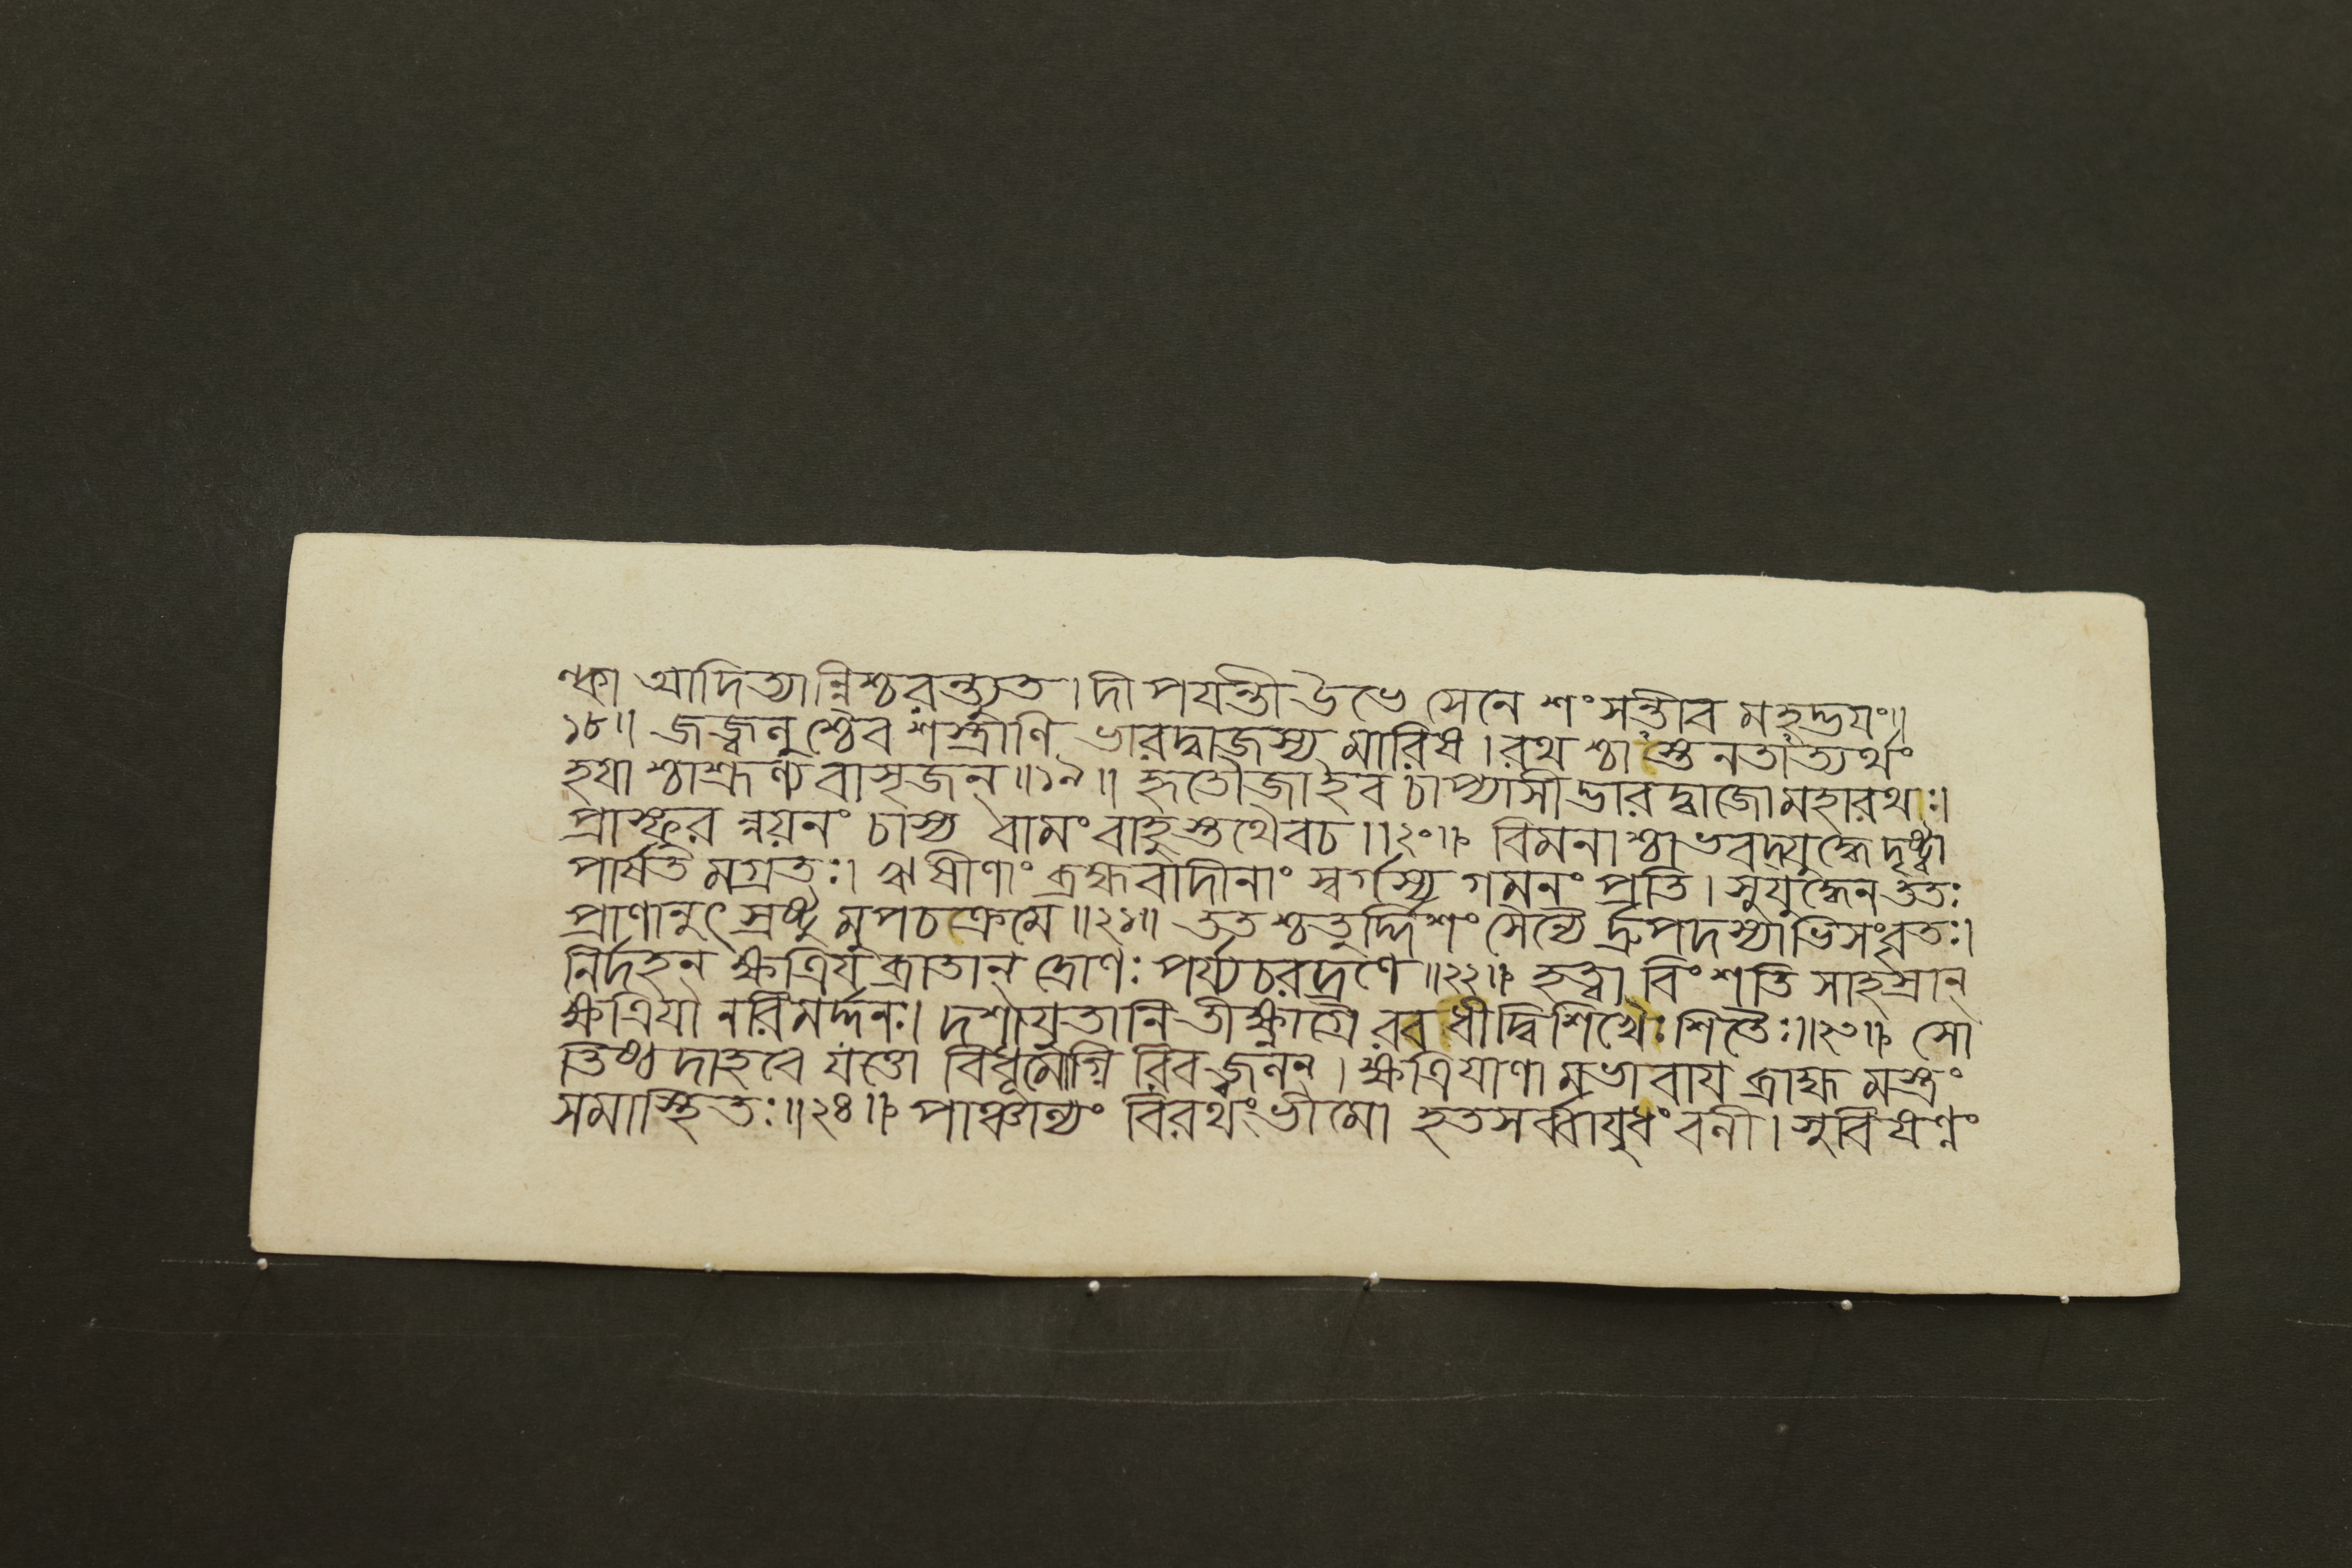 ল্কা আদিত্যান্নিশ্চরন্ত্যুত। দীপযন্তীউভে সেনে শংসন্তীব মহদ্ভযং॥
১৮॥ জজ্বলুশ্চৈব শস্ত্রাণি ভারদ্বাজস্য মারিষ। রথ শ্চাস্তনতাত্যর্থং
হযা শ্চাশ্রূণ্য বাসৃজন্॥১৯॥ হৃতৌজাইব চাপ্যাসীদ্ভারদ্বাজোমহারথঃ।
প্রাস্ফুর ন্নয়নং চাস্য বামং বাহুস্তথৈবচ॥২০॥ বিমনাশ্চা ভবদ্যুদ্ধে দৃষ্ট্বা
পার্ষত মগ্রতঃ। ঋষীণাং ব্রহ্মবাদীনাং স্বর্গস্য গমনং প্রতি। সুযুদ্ধেন ততঃ
প্রাণানুৎস্রষ্টু মুপচক্রেমে॥২১॥ তত শ্চতুর্দ্দিশং সৈন্যৈ র্দ্রুপদস্যাভিসংবৃতঃ।
নির্দহন্ ক্ষত্রিয ব্রাতান্ দ্রোণঃ পর্য্যচরদ্রণে॥২২॥ হত্বা বিংশতি সাহস্রান্
ক্ষত্রিযা নরিমর্দ্দনঃ। দশাযুতানি তীক্ষ্ণাগ্রৈ রবধীদ্বিশিখৈঃ শিতৈঃ॥২৩॥ সো
তিষ্ঠ দাহবে যত্তো বিধূমোগ্নি রিব জ্বলন্। ক্ষত্রিযাণা মভাবায ব্রাহ্ম মস্ত্রং
সমাস্থিতঃ॥২৪॥ পাঞ্চাল্যং বিরথং ভীমো হতসর্ব্বাযুধং বলী। সুবিষণ্নং